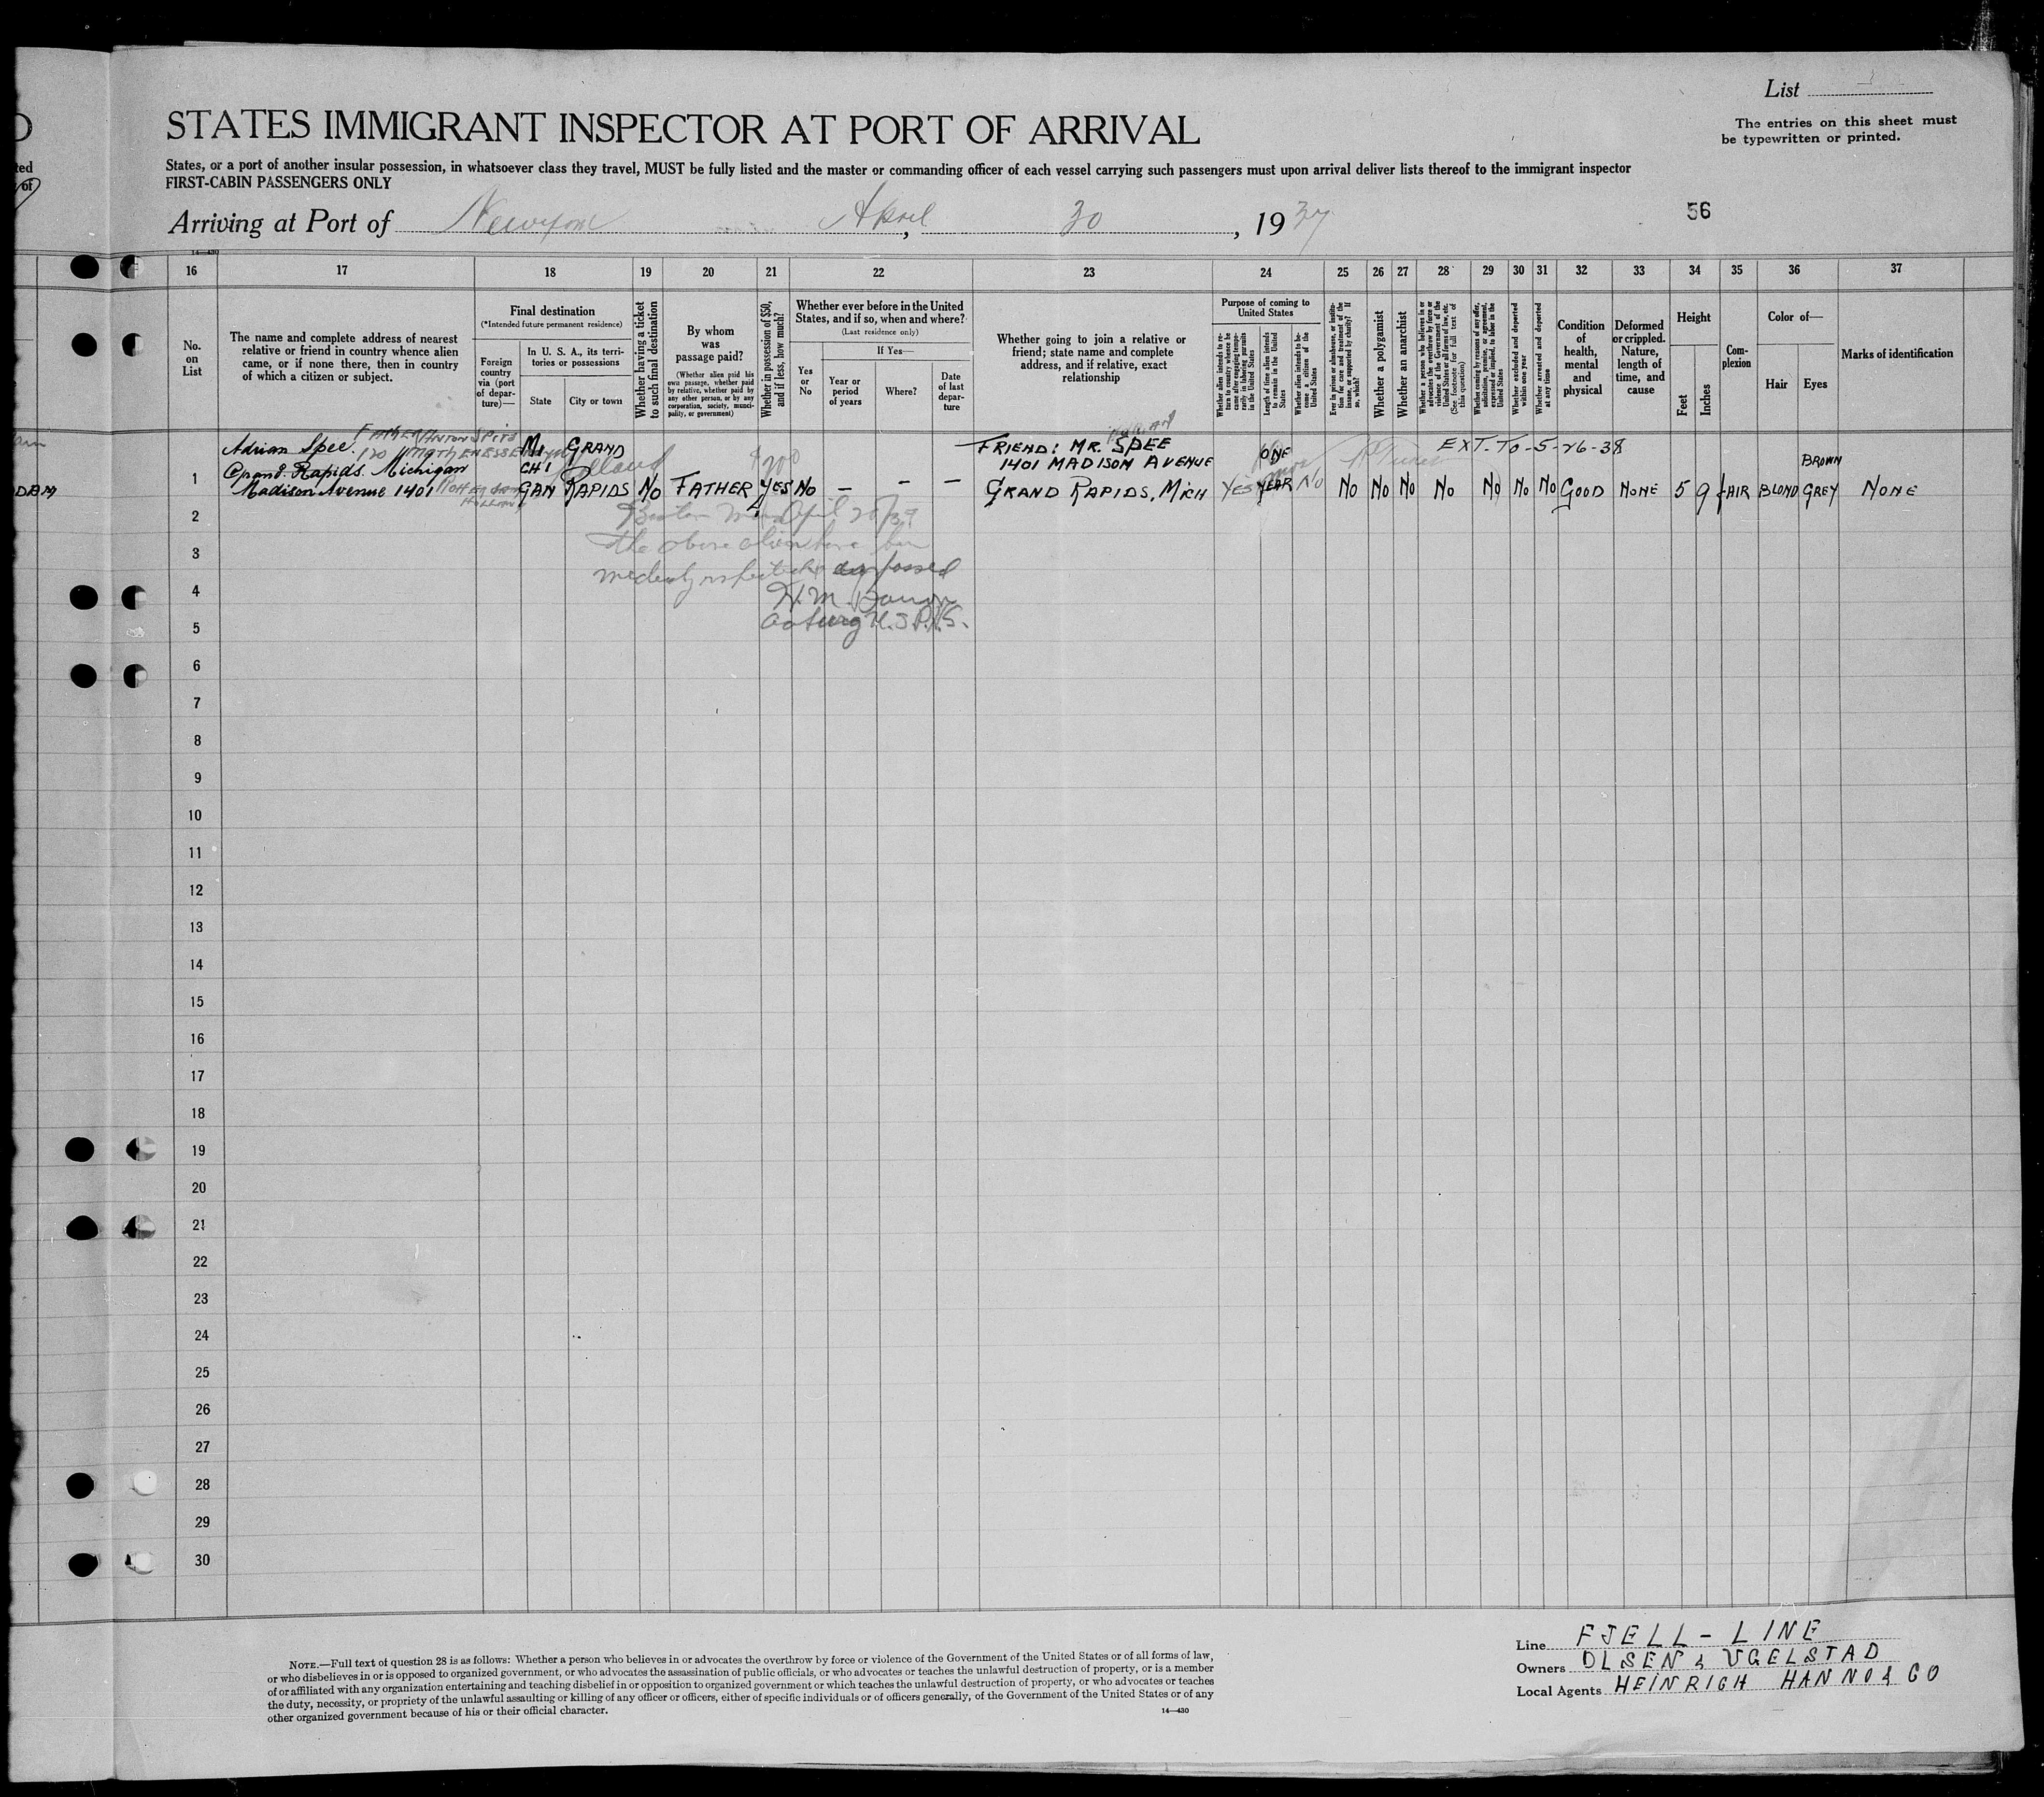 List
The entries on this sheet must
be typewritten or printed.
STATES IMMIGRANT INSPECTOR AT PORT OF ARRIVAL
States, or a port of another insular possession, in whatsoever class they travel, MUST be fully listed and the master or commanding officer of each vessel carrying such passengers must upon arrival deliver lists thereof to the immigrant inspector
FIRST-CABIN PASSENGERS ONLY
Arriving at Port of April, 30, 1937
56
14—430
16 17 18 19 20 21 22 23 24 25 26 27 28 29 30 31 32 33 34 35 36 37
No.
on
List
The name and complete address of nearest
relative or friend in country whence alien
came, or if none there, then in country
of which a citizen or subject.
Final destination
(*Intended future permanent residence)
Foreign
country
via (port
of depar-
ture)—
In U. S. A., its terri-
tories or possessions
State
City or town
Whether having a ticket
to such final destination
By whom
was
passage paid?
(Whether alien paid his
own passage, whether paid
by relative, whether paid by
any other person, or by any
corporation, society, munici-
pality, or government)
Whether in possession of $50,
and if less, how much?
Whether ever before in the United
States, and if so, when and where?
(Last residence only)
Yes
or
No
If Yes—
Year or
period
of years
Where?
Date
of last
depar-
ture
Whether going to join a relative or
friend; state name and complete
address, and if relative, exact
relationship
Purpose of coming to
United States
Whether alien intends to re-
turn to country whence he
came after engaging tempo-
rarily in laboring pursuits
in the United States
Length of time alien intends
to remain in the United
States
Whether alien intends to be-
come a citizen of the
United States
Ever in prison or almshouse, or institu-
tion for care and treatment of the
insane, or supported by charity? If
so, which?
Whether a polygamist
Whether an anarchist
Whether a person who believes in or
advocates the overthrow by force or
violence of the Government of the
United States or all forms of law, etc.
(See footnote for full text of
this question)
Whether coming by reasons of any offer,
solicitation, promise, or agreement,
expressed or implied, to labor in the
United States
Whether excluded and deported
within one year
Whether arrested and deported
at any time
Condition
of
health,
mental
and
physical
Deformed
or crippled.
Nature,
length of
time, and
cause
Height
Feet
Inches
Com-
plexion
Color of—
Hair
Eyes
Marks of identification
Adrian Spee. FATHER ANTON SPITS MI GRAND FRIEND: MR. SPEE ONE EXT. TO-5-26-38
Grand-Rapids. Michigan CHI Holland $200 1401 MADISON AVENUE BROWN
1 Madison Avenue 1401 GAN RAPIDS NO FATHER YES NO — — — GRAND RAPIDS, MICH YES YEAR NO NO NO NO NO NO NO NO GOOD NONE 5 9 FAIR BLOND GREY NONE
DAM
2 April
3 the above alien have been
4 medically inspected passed
H. M.
5 U.S.P.H.S.
6
7
8
9
10
11
12
13
14
15
16
17
18
19
20
21
22
23
24
25
26
27
28
29
30
NOTE.—Full text of question 28 is as follows: Whether a person who believes in or advocates the overthrow by force or violence of the Government of the United States or of all forms of law,
or who disbelieves in or is opposed to organized government, or who advocates the assassination of public officials, or who advocates or teaches the unlawful destruction of property, or is a member
of or affiliated with any organization entertaining and teaching disbelief in or opposition to organized government or which teaches the unlawful destruction of property, or who advocates or teaches
the duty, necessity, or propriety of the unlawful assaulting or killing of any officer or officers, either of specific individuals or of officers generally, of the Government of the United States or of any
other organized government because of his or their official character.
14—430
Line FJELL-LINE
Owners OLSEN & UGELSTAD
Local Agents HEINRICH HANNO & CO